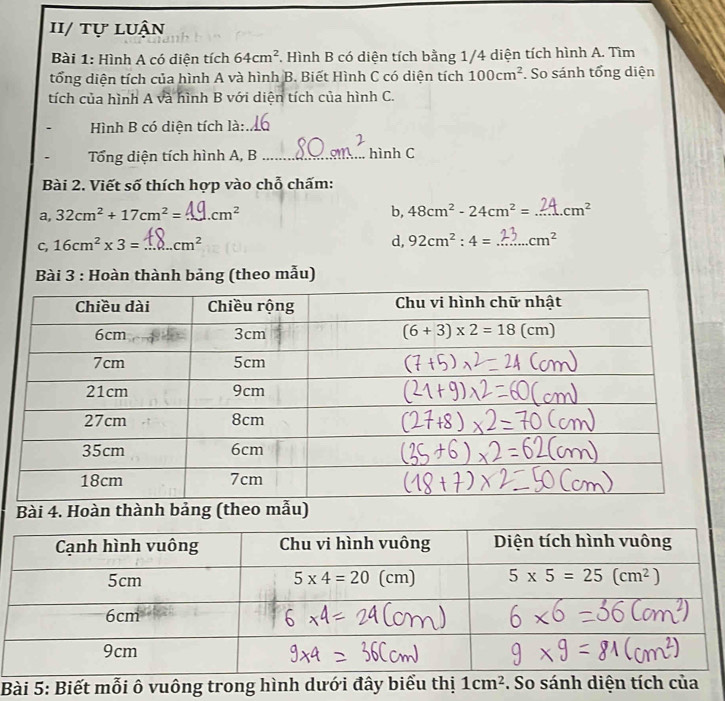 II/ TỰ LUẬN
Bài 1: Hình A có diện tích 64cm². Hình B có diện tích bằng 1/4 diện tích hình A. Tìm
tổng diện tích của hình A và hình B. Biết Hình C có diện tích 100cm². So sánh tổng diện
tích của hình A và hình B với diện tích của hình C.
- Hình B có diện tích là:..16
- Tổng diện tích hình A, B ........80 cm²........ hình C
Bài 2. Viết số thích hợp vào chỗ chấm:
a, 32cm² + 17cm² = 49.cm² b, 48cm² - 24cm² = ..24...cm²
c, 16cm² x 3 = 48...cm² d, 92cm² : 4 = ..23...cm²
Bài 3 : Hoàn thành bảng (theo mẫu)
Chiều dài Chiều rộng Chu vi hình chữ nhật
6cm 3cm (6 + 3) x 2 = 18 (cm)
7cm 5cm (7+5) x2 = 24 (cm)
21cm 9cm (21+9) x2 =60(cm)
27cm 8cm (27+8) x2=70 (cm)
35cm 6cm (35+6) x2 =62(cm)
18cm 7cm (18+7) x 2 =50 (cm)
Bài 4. Hoàn thành bảng (theo mẫu)
Cạnh hình vuông Chu vi hình vuông Diện tích hình vuông
5cm 5 x 4 = 20 (cm) 5 x 5 = 25 (cm²)
6cm 6 x4= 24(cm) 6 x6 =36(cm²)
9cm 9x4 = 36(cm) 9 x9=81(cm²)
Bài 5: Biết mỗi ô vuông trong hình dưới đây biểu thị 1cm². So sánh diện tích của